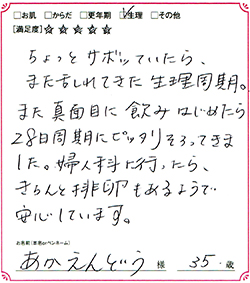 □お肌 □からだ □更年期 ☑生理 □その他
[満足度] ☆ ☆ ☆ ☆ ☆
ちょっとサボッていたら、
また乱れてきた生理周期。
また真面目に飲みはじめたら
28日周期にピッタリそろってきま
した。婦人科に行ったら、
きちんと排卵もあるようで
安心しています。
お名前(本名orペンネーム)
あかえんどう 様 35 歳